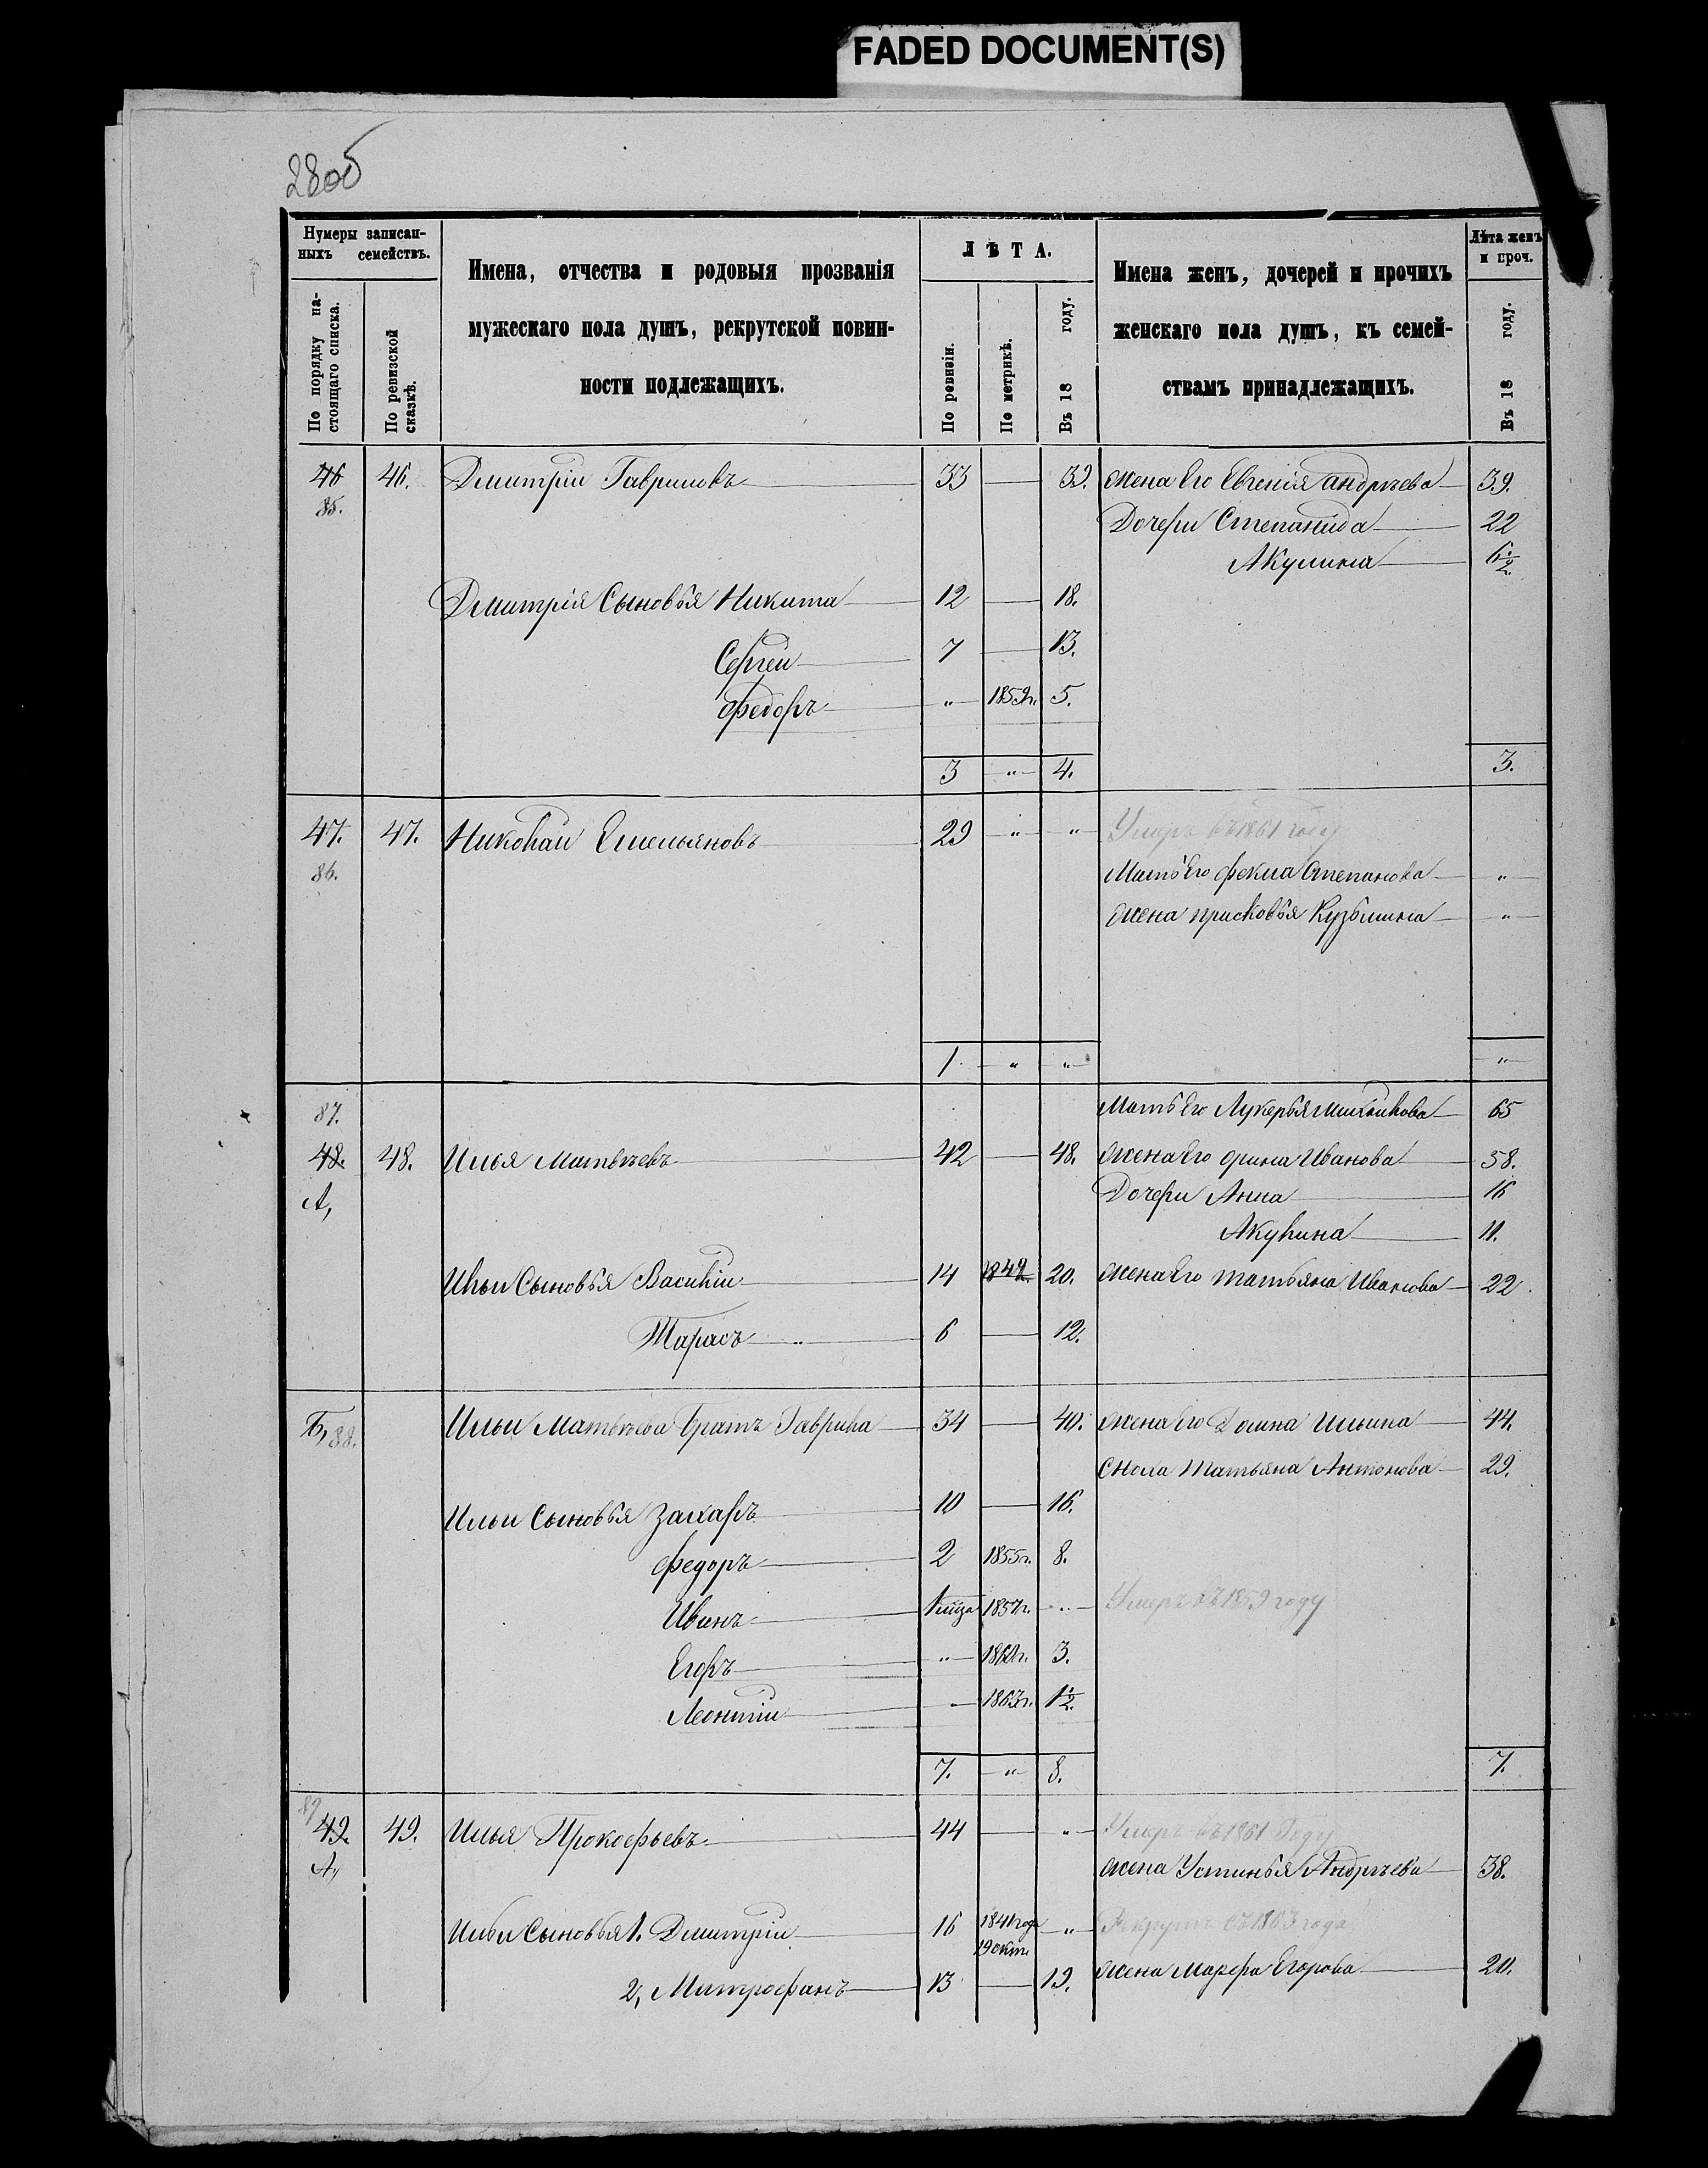 FADED DOCUMENT(S)
280об
Нумеры записан-
ныхъ семействъ.
По порядку на-
стоящаго списка.
По ревизской
сказкѣ.
Имена, отчества и родовыя прозванія
мужескаго пола душъ, рекрутской повин-
ности подлежащихъ.
ЛѢТА.
По ревизіи.
По метрикѣ.
Въ 18 году.
Имена женъ, дочерей и прочихъ
женскаго пола душъ, къ семей-
ствамъ принадлежащихъ.
Лѣта женъ
и проч.
Въ 18 году.
46 46. Дмитрій Гавриловъ 33 — 39. жена Его Евгенія андрѣева 39.
85.
Дочери Степанида 22
Акулина 6 1/2
Дмитрія Сыновья Никита 12 — 18.
Сергей 7 — 13.
Федоръ " 1859г. 5.
3 " 4. 3.
47. 47. Николай Емельяновъ 29 " " Умеръ въ 1861 году
86.
Мать Его фекла Степанова "
жена прасковья Кузьмина "
1 " " "
87.
Мать Его Лукерья михайлова 65
48. 48. Илья Матвѣевъ 42 — 48. жена Его орина Иванова 58.
А,
Дочери Анна 16
Акулина 11.
Ильи Сыновья Василій 14 1842. 20. жена Его татьяна Иванова 22.
Тарасъ 6 — 12.
Б, 88. Ильи Матвѣева братъ Гаврила 34 — 40. жена Его Домна Ильина 44.
сноха татьяна Антонова 29.
Ильи Сыновья Захаръ 10 — 16.
федоръ 2 1855г. 8.
Иванъ 1 мца 1857г. " Умеръ въ 1859 году
Егоръ " 3.
Леонтій " 1863г. 1 1/2.
7. " 8. 7.
89
49. 49. Илья Прокофьевъ 44 — " Умеръ въ 1861 Году
А,
жена Устинья Андрѣева 38.
Ильи Сыновья 1. Дмитрій 16 1841 года " Рекрутъ съ 1863 года
19 окт.
2, Митрофанъ 13 — 19. жена Марфа Егорова 20.